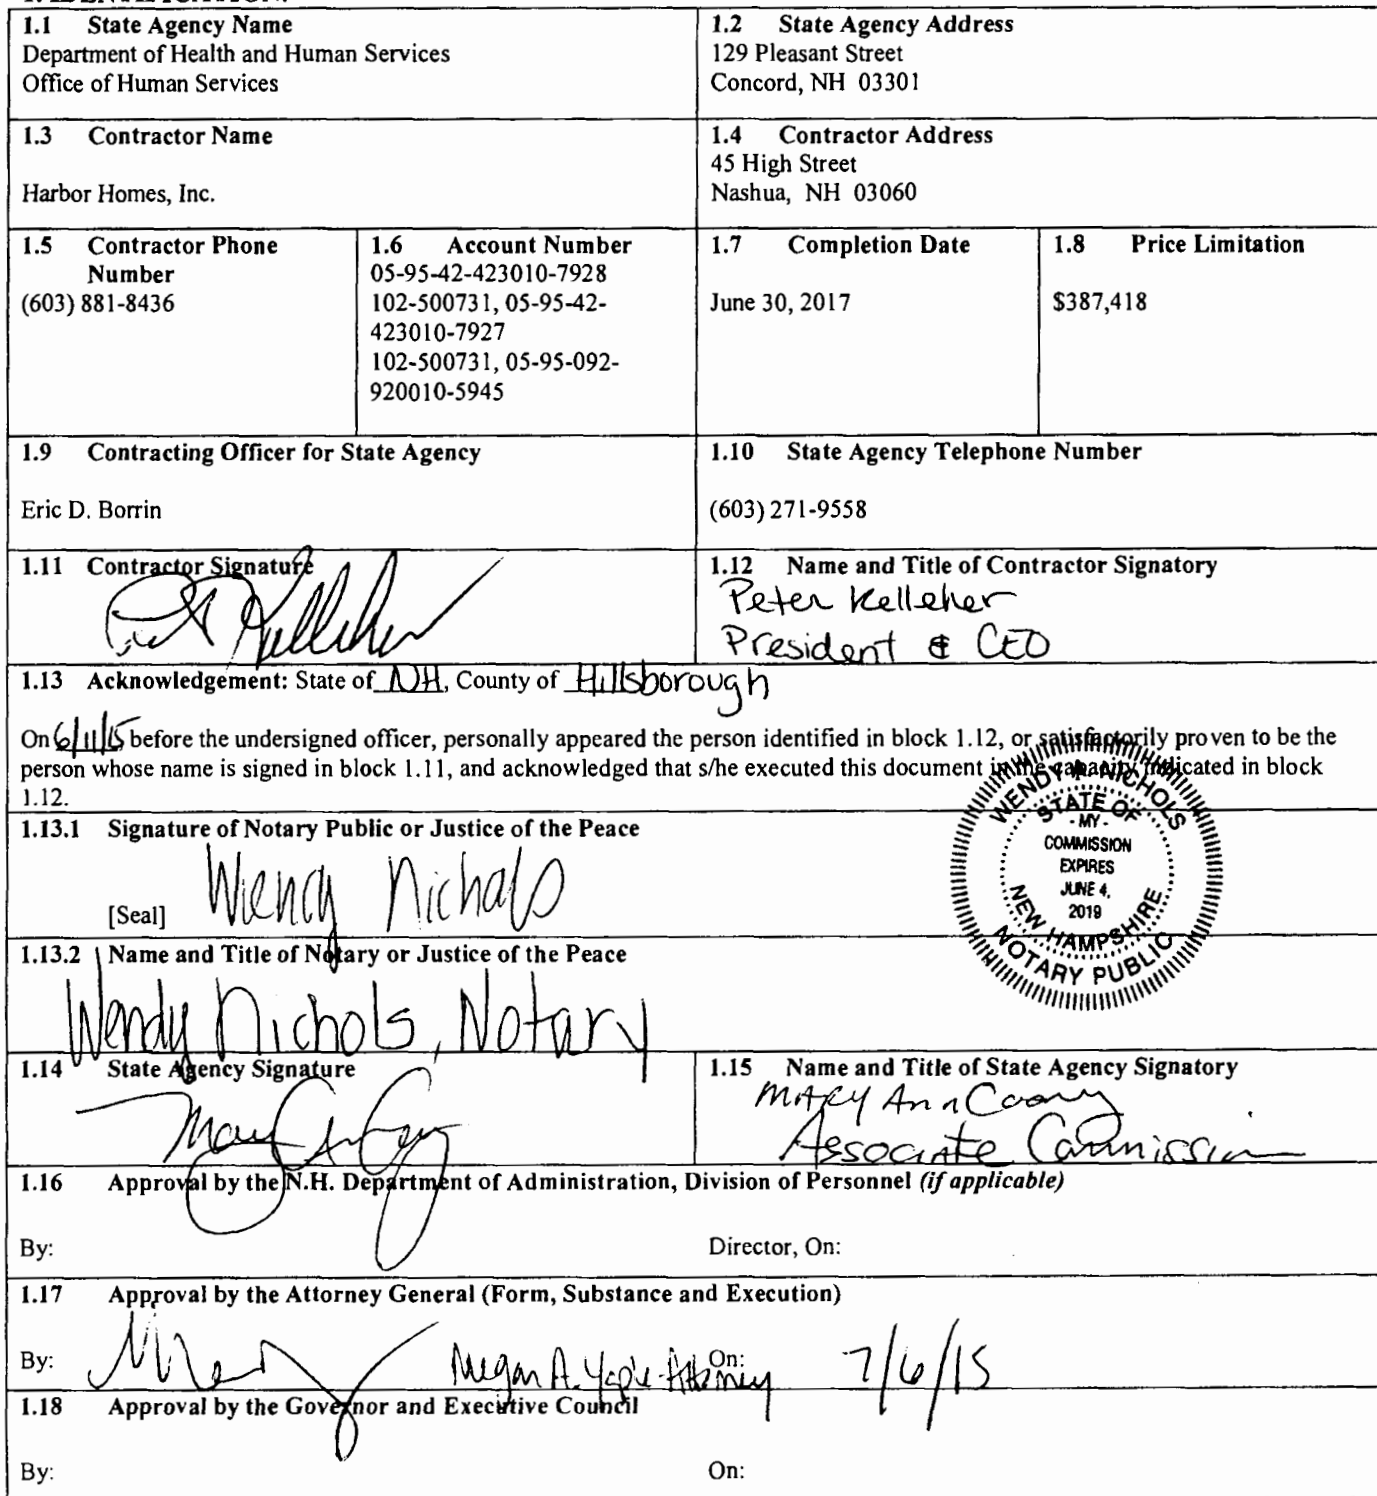 1.1 State Agency Name
Department of Health and Human Services
Office of Human Services
1.2 State Agency Address
129 Pleasant Street
Concord, NH 03301
1.3 Contractor Name
Harbor Homes, Inc.
1.4 Contractor Address
45 High Street
Nashua, NH 03060
1.5 Contractor Phone
Number
(603) 881-8436
1.6 Account Number
05-95-42-423010-7928
102-500731, 05-95-42-
423010-7927
102-500731, 05-95-092-
920010-5945
1.7 Completion Date
June 30, 2017
1.8 Price Limitation
$387,418
1.9 Contracting Officer for State Agency
Eric D. Borrin
1.10 State Agency Telephone Number
(603) 271-9558
1.11 Contractor Signature
1.12 Name and Title of Contractor Signatory
Peter Kelleher
President & CEO
1.13 Acknowledgement: State of NH, County of Hillsborough
On 6/11/15 before the undersigned officer, personally appeared the person identified in block 1.12, or satisfactorily proven to be the
person whose name is signed in block 1.11, and acknowledged that s/he executed this document in the capacity indicated in block
1.12.
1.13.1 Signature of Notary Public or Justice of the Peace
Wendy Nichols
[Seal]
WENDY A. NICHOLS
STATE OF
- MY -
COMMISSION
EXPIRES
JUNE 4,
2019
NEW HAMPSHIRE
NOTARY PUBLIC
1.13.2 Name and Title of Notary or Justice of the Peace
Wendy Nichols, Notary
1.14 State Agency Signature
1.15 Name and Title of State Agency Signatory
Mary Ann Cooney
Associate Commissioner
1.16 Approval by the N.H. Department of Administration, Division of Personnel (if applicable)
By:
Director, On:
1.17 Approval by the Attorney General (Form, Substance and Execution)
By: Megan A. Yaple - Attorney On: 7/6/15
1.18 Approval by the Governor and Executive Council
By:
On: